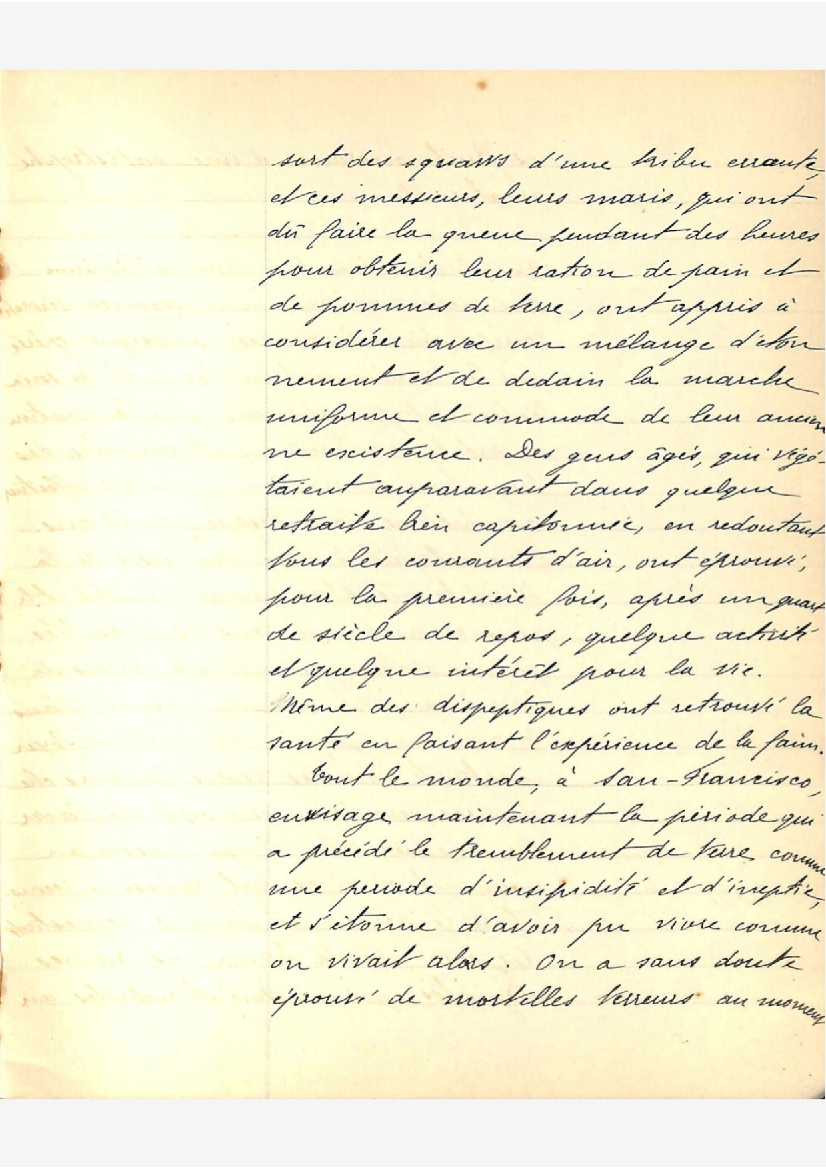 sort des squaws d'une tribu errante,
et ces messieurs, leurs maris, qui ont
dû faire la queue pendant des heures
pour obtenir leur ration de pain et
de pommes de terre, ont appris à
considérer avec un mélange d'éton
nement et de dedain la marche
uniforme et commode de leur ancien
ne existence. Des gens âgés, qui végé-
taient auparavant dans quelque
retraite bien capitonnée, en redoutant
tous les courants d'air, ont éprouvé,
pour la première fois, après un quart
de siècle de repos, quelque activité
et quelque intérêt pour la vie.
Même des dispeptiques ont retrouvé la
santé en faisant l'expérience de la faim.
Tout le monde, à San-Francisco,
envisage maintenant la période qui
a précédé le tremblement de terre comme
une periode d'insipidité et d'ineptie,
et s'étonne d'avoir pu vivre comme
on vivait alors. On a sans doute
éprouvé de mortelles terreurs au moment